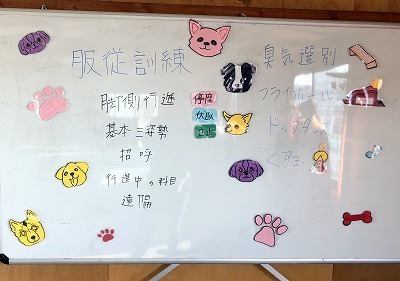 服従訓練
脚側行進
基本三姿勢
停座
伏臥
立止
招呼
行進中の科目
遠隔
臭気選別
フライボール
ドッグダンス
くす玉